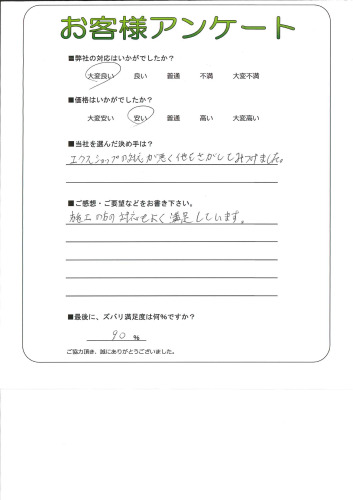 お客様アンケート
■弊社の対応はいかがでしたか?
大変良い 良い 普通 不満 大変不満
■価格はいかがでしたか?
大変安い 安い 普通 高い 大変高い
■当社を選んだ決め手は?
エクスショップの対応が悪く他をさがしてみつけました。
■ご感想・ご要望などをお書き下さい。
施工の方の対応もよく満足しています。
■最後に、ズバリ満足度は何%ですか?
90 %
ご協力頂き、誠にありがとうございました。